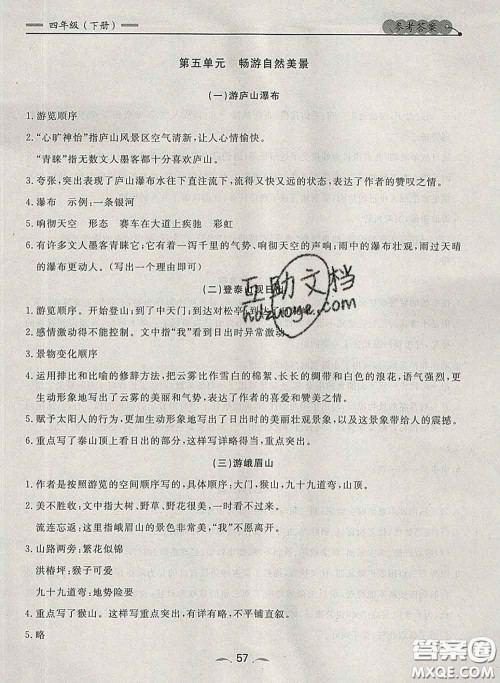 四年级（下册）
参考答案
第五单元　畅游自然美景
（一）游庐山瀑布
1. 游览顺序
2. “心旷神怡”指庐山风景区空气清新，让人心情愉快。
“青睐”指无数文人墨客都十分喜欢庐山。
3. 夸张，突出表现了庐山瀑布水往下直往流下，流得很快，一泻千里的气势，表达了作者的赞叹之情。
4. 瀑布　示例：一条银河
5. 响彻天空　形态　赛车在大道上疾驰　彩虹
6. 有许多文人墨客青睐它；它有着一泻千里的气势、响彻天空的声响；雨中的瀑布壮观，雨过天晴
的瀑布更动人。（写出一个理由即可）
（二）登泰山观日出
1. 游览顺序。开始登山；到了中天门；到达对松亭
2. 感情激动得不能控制。文中指“我”看到日出时异常激动。
3. 景物变化顺序
4. 运用排比和比喻的修辞方法，把云雾比作雪白的棉絮、长长的绸带和白色的浪花，语气强烈，更
生动形象地写出了云雾的美丽和变化，表达了作者的喜爱和赞美之情。
5. 赋予太阳人的行为，更生动形象地写出了日出时的美丽壮观景象，以及这景象带给人的震撼。
6. 重点写了泰山顶上看日出的部分。这样写详略得当，重点突出。
（三）游峨眉山
1. 作者是按照游览的空间顺序写的，具体顺序：大门，猴山，九十九道弯，山顶。
2. 美不胜收：文中指大树、野草、野花很美，看也看不过来。
流连忘返：这里指峨眉山的景色非常美，“我”不愿意离开。
3. 山路两旁：繁花似锦
洪椿坪：猴子可爱
九十九道弯：地势险要
4. 重点写了猴山。这样写重点突出，有详有略，不平铺直叙。
5. 略
57
互助文档
huzuoye.com
答案圈
MXQE.COM